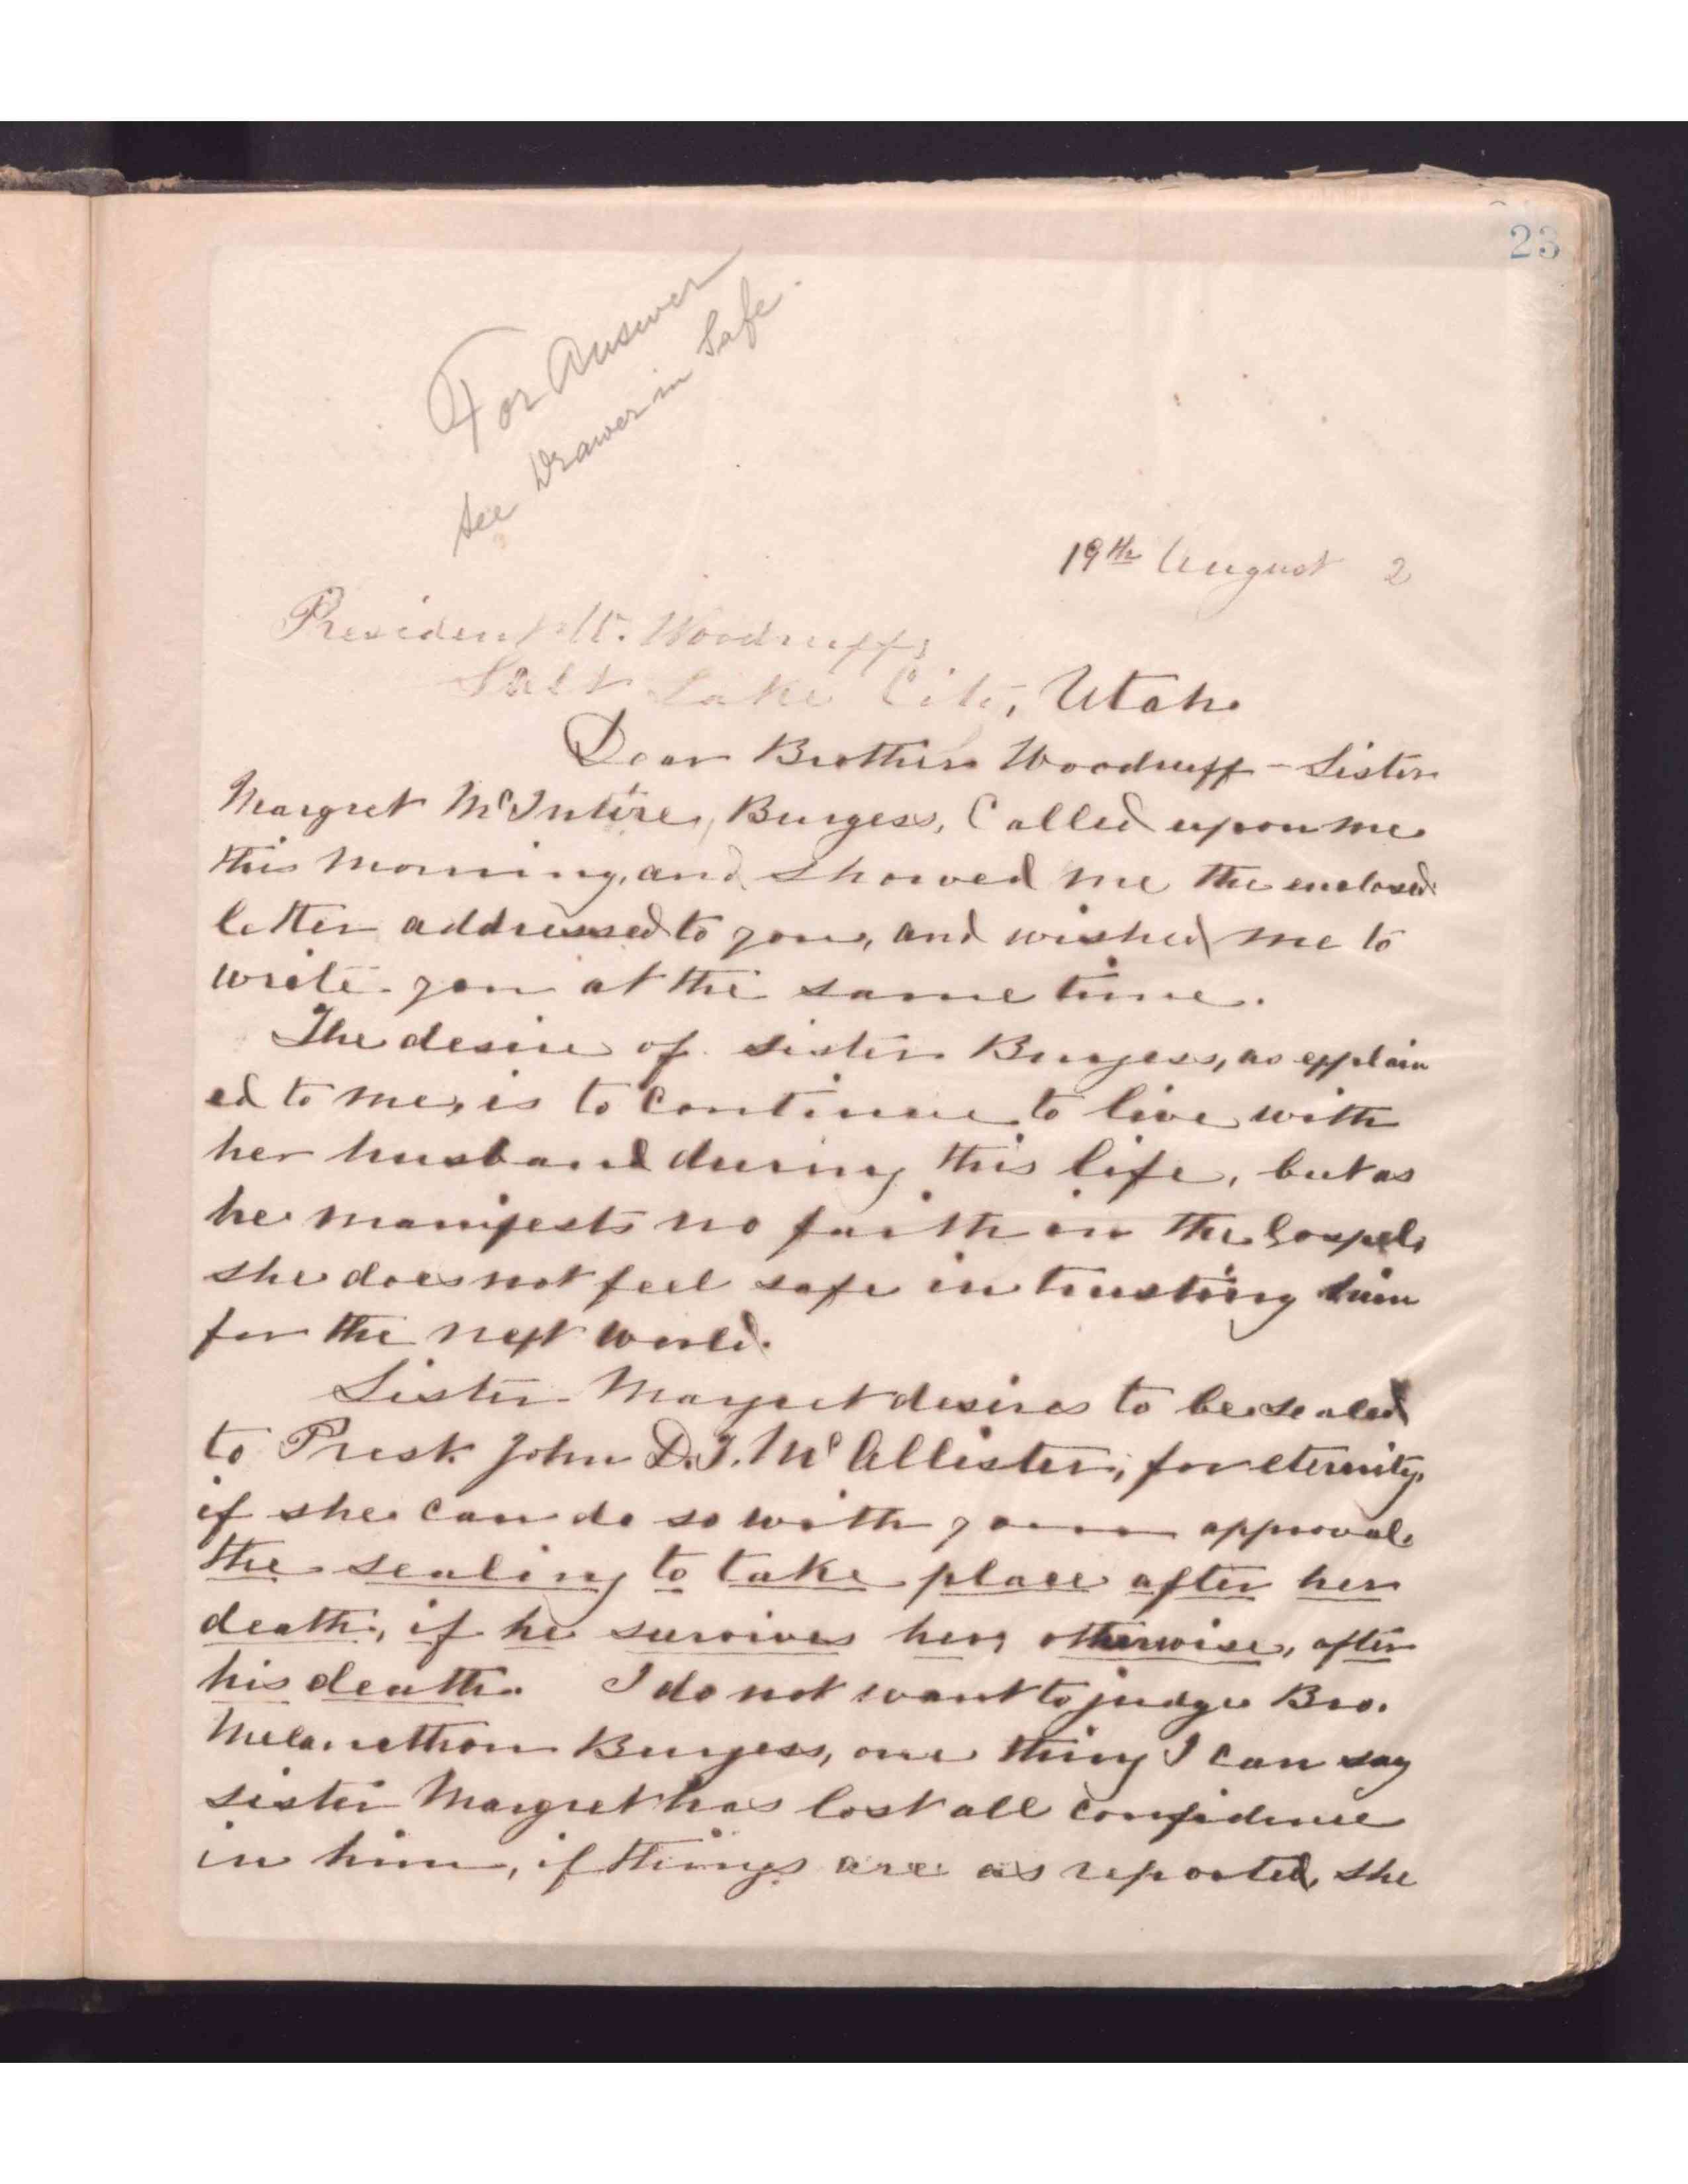 23
For Answer
See Drawer in Safe.
19th August 2
President W. Woodruff,
Salt Lake City, Utah.
Dear Brother Woodruff - Sister
Margret McIntire, Burgess, Called upon me
this morning, and showed me the enclosed
letter addressed to you, and wished me to
write you at the same time.
The desire of sister Burgess, as explain
ed to me, is to continue to live with
her husband during this life, but as
he manifests no faith in the Gospel,
she does not feel safe in trusting him
for the next world.
Sister Margret desires to be sealed
to Prest. John D.T. McAllister, for eternity,
if she can do so with your approval.
the sealing to take place after her
death, if he survives her, otherwise, after
his death. I do not want to judge Bro.
Melancthon Burgess, one thing I can say
sister Margret has lost all confidence
in him, if things are as reported, she